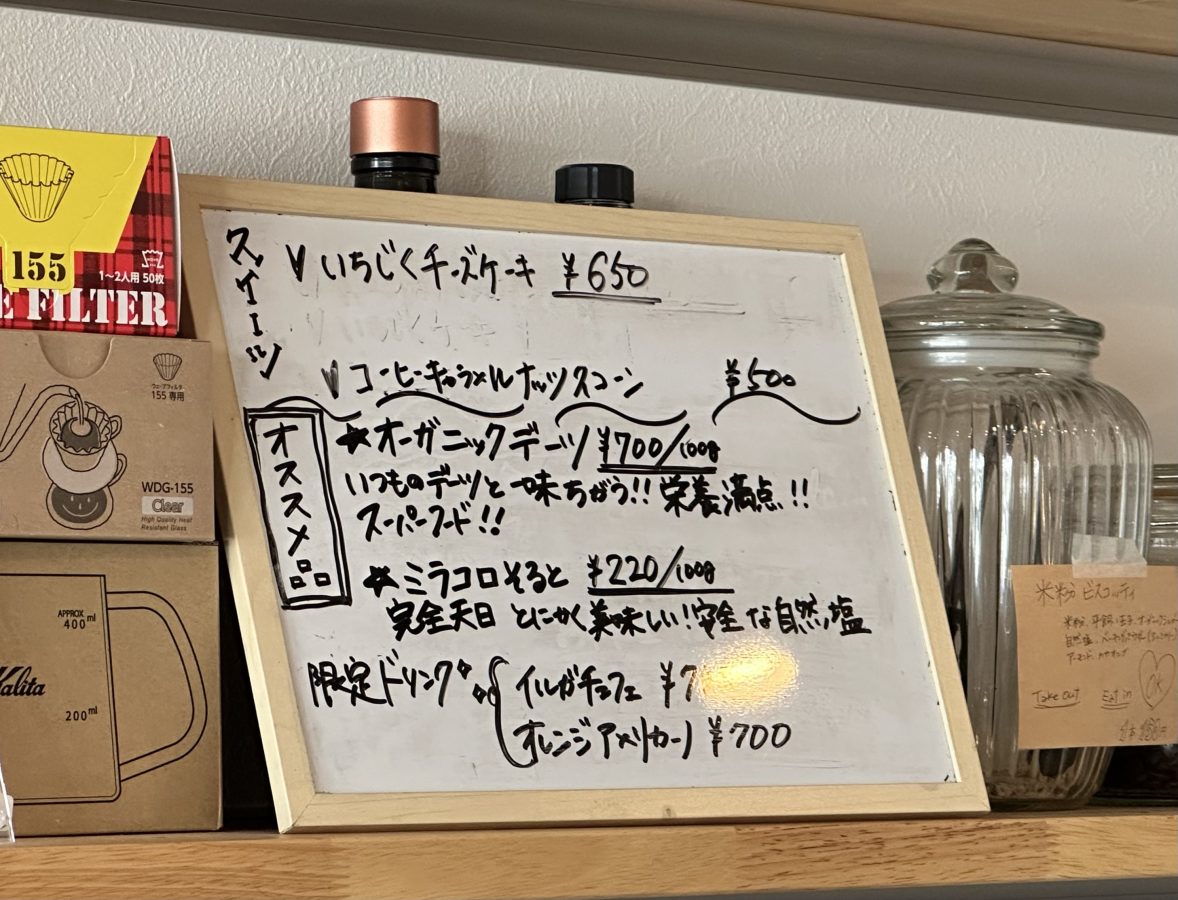 155
1~2人用 50枚
E FILTER
ウェーブフィルタ
155 専用
WDG-155
Clear
High Quality Heat
Resistant Glass
APPROX.
400ml
Kalita
200ml
スイーツ
いちじくチーズケーキ ¥650
いちじくケーキ
コーヒーキャラメルナッツスコーン ¥500
オススメ品
★オーガニックデーツ ¥700/100g
いつものデーツと一味ちがう!! 栄養満点!!
スーパーフード!!
★ミラコロそると ¥220/100g
完全天日 とにかく美味しい!安全な自然塩
限定ドリンク
イルガチェフェ ¥7
オレンジアメリカーノ ¥700
米粉 ビスコッティ
米粉、平飼い玉子、オーガニック
自然塩、
アーモンド、
Take out Eat in
OK